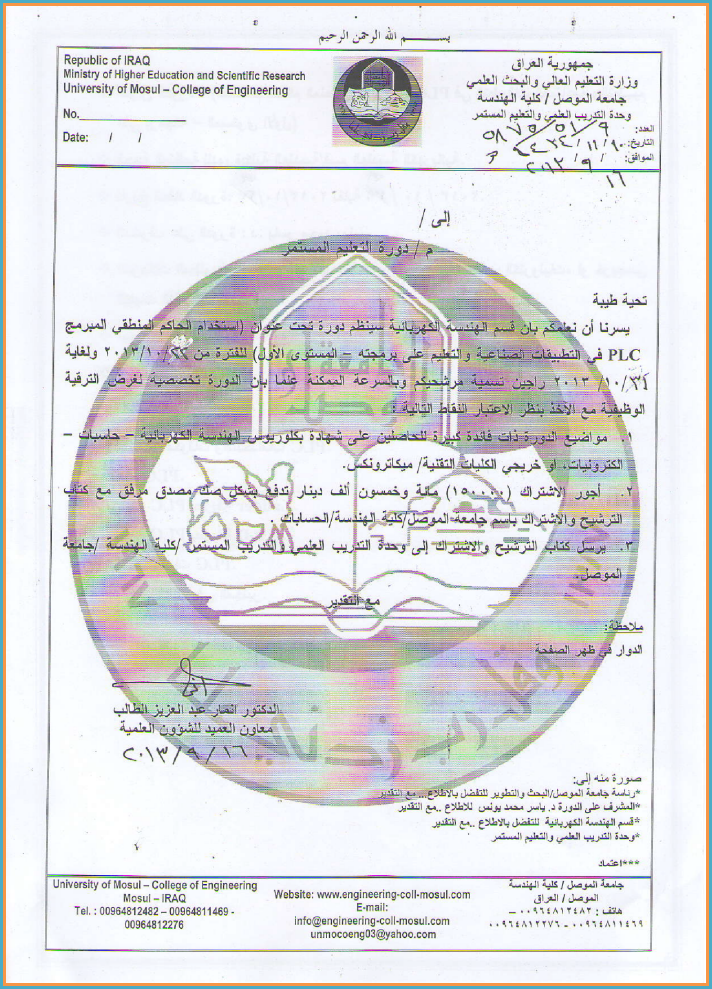 بســـم الله الرحمن الرحيم
Republic of IRAQ
Ministry of Higher Education and Scientific Research
University of Mosul – College of Engineering
No.
Date: / /
جمهورية العراق
وزارة التعليم العالي والبحث العلمي
جامعة الموصل / كلية الهندسة
وحدة التدريب العلمي والتعليم المستمر
العدد:
التاريخ:
الموافق: ١٦ / ٩ / ٢٠١٣
إلى /
م / دورة التعليم المستمر
تحية طيبة
يسرنا أن نعلمكم بان قسم الهندسة الكهربائية سينظم دورة تحت عنوان (استخدام الحاكم المنطقي المبرمج
PLC في التطبيقات الصناعية والتعليم على برمجته – المستوى الاول) للفترة من ٢٠١٣/١٠/ ولغاية
٢٠١٣ /١٠/ راجين تسمية مرشحيكم وبالسرعة الممكنة علما بان الدورة تخصصية لغرض الترقية
الوظيفية مع الاخذ بنظر الاعتبار النقاط التالية :
١. مواضيع الدورة ذات فائدة كبيرة للحاصلين على شهادة بكلوريوس الهندسة الكهربائية – حاسبات –
الكترونيات، او خريجي الكليات التقنية/ ميكاترونكس.
٢. أجور الاشتراك (١٥٠٠٠٠) مائة وخمسون ألف دينار تدفع بشكل صك مصدق مرفق مع كتاب
الترشيح والاشتراك باسم جامعة الموصل/كلية الهندسة/الحسابات .
٣. يرسل كتاب الترشيح والاشتراك إلى وحدة التدريب العلمي والتدريب المستمر /كلية الهندسة /جامعة
الموصل.
مع التقدير
ملاحظة:
الدوار في ظهر الصفحة
الدكتور انمار عبد العزيز الطالب
معاون العميد للشؤون العلمية
٢٠١٣/٩/١٦
صورة منه إلى:
*رئاسة جامعة الموصل/البحث والتطوير للتفضل بالاطلاع... مع التقدير
*المشرف على الدورة د. ياسر محمد يونس للاطلاع ..مع التقدير
*قسم الهندسة الكهربائية للتفضل بالاطلاع ..مع التقدير
*وحدة التدريب العلمي والتعليم المستمر
***اعتماد
University of Mosul – College of Engineering
Mosul – IRAQ
Tel. : 00964812482 – 00964811469 -
00964812276
Website: www.engineering-coll-mosul.com
E-mail:
info@engineering-coll-mosul.com
unmocoeng03@yahoo.com
جامعة الموصل / كلية الهندسة
الموصل / العراق
هاتف : ٠٠٩٦٤٨١٢٤٨٢ –
٠٠٩٦٤٨١١٤٦٩ - ٠٠٩٦٤٨١٢٢٧٦